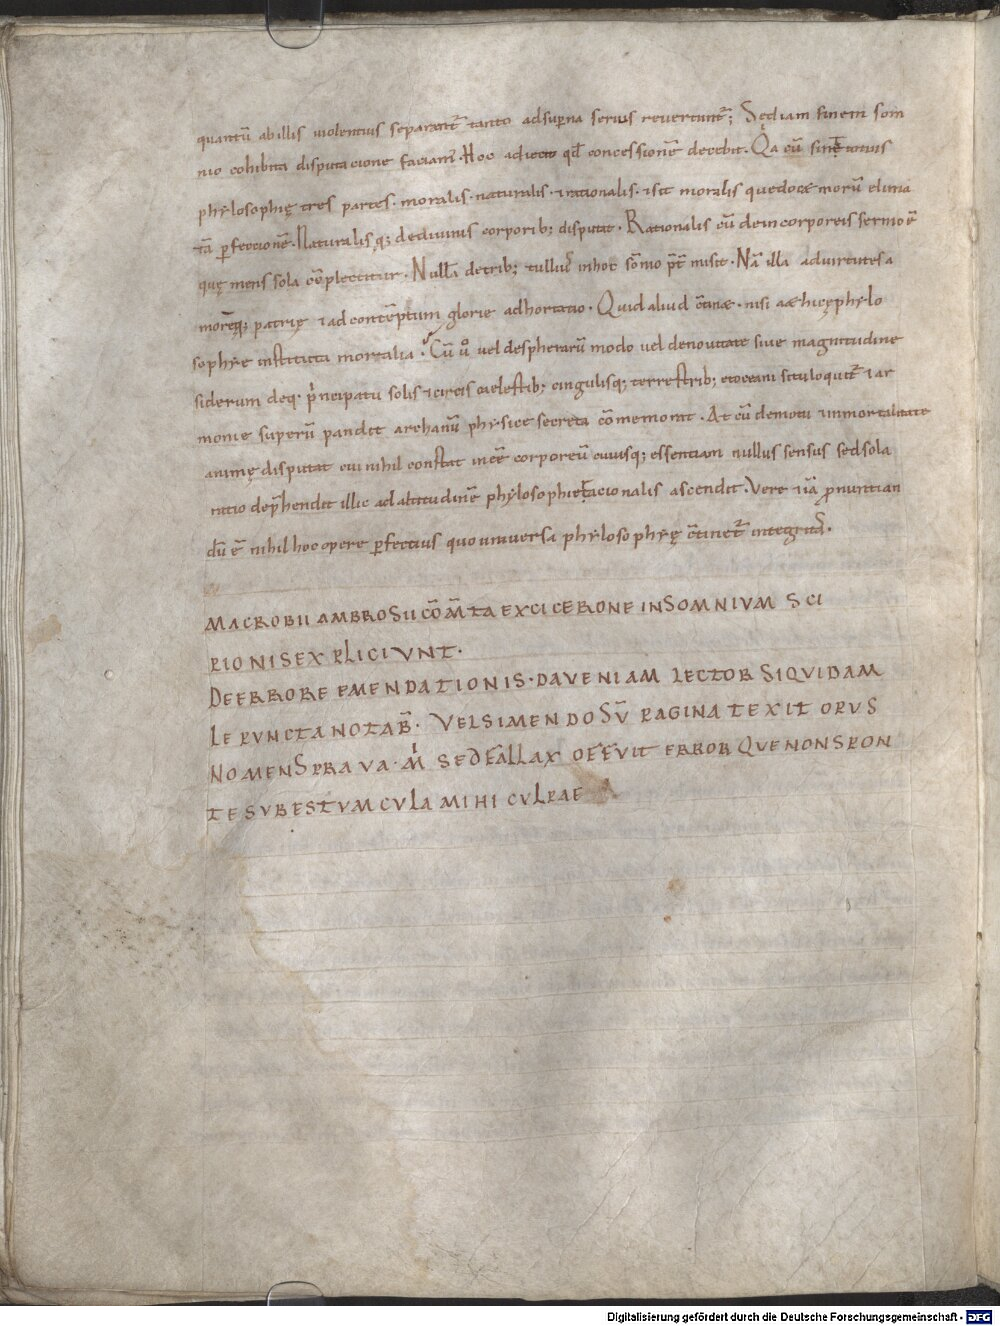 quantū abillis uiolentius separant᷑ tanto adsup̄na serius reuertunt᷑; Sediam finem som
nio cohibita disputacione faciam᷒. Hoc adiecto qđ concessionē decebit. Q̇a cū sint totius
phylosophię tres partes. moralis. naturalis. ⁊rationalis. ⁊sit moralis quedocæ morū elima
tā ꝑfeccionē. Naturalis quę; dediuinis corporib; disputat. Rationalis cū deincorporeis sermo ē
quę mens sola cōplectitur. Nullā detrib; tulliꝰ inhoc sōnio p̄t̄misit. Nā illa aduirtutes a
morēq; patrię ⁊adcontēptum glorie adhortatio. Quid aliud ↄtinæ. nisi æthicę phylo
sophye instituta mortalia. Cū uͦ uel despherarū modo uel denouitate siue magnitudine
siderum deq. pͥncipatu solis ⁊circis caelestib; cingulisq; terrestrib; etoceani situ loquit᷑ ⁊ar
monie superū pandit archanū physice secreta cōmemorat. At cū demotu ⁊inmortalitate
animę disputat cui nihil constat in eē corporeū cuiusq; essentiam nullus sensus sedsola
ratio dep̄hendit illic ad altitudinē phylosophie racionalis ascendit. Vere ⁊iā ꝓnuntian
dū ē nihil hoc opere ꝑfectius quo uniuersa phylosophyę ↄtinet᷑ integritas.
MACROBII AMBROSII CŌM̄TA EXCICERONE INSOMNIVM SCI
PIONIS EXPLICIVNT.
DEERRORE EMENDATIONIS. DAVENIAM LECTOR SIQVIDAM
LE PVNCTA NOTAB᷑. VELSIMENDOSV̄ PAGINA TEXIT OPVS
NOMENS PRAVA. Mͥ SEDFALLAX OFFVIT ERROR QVENONSPON
TESVBESTVMCVLA MIHI CVLPAE
Digitalisierung gefördert durch die Deutsche Forschungsgemeinschaft - DFG